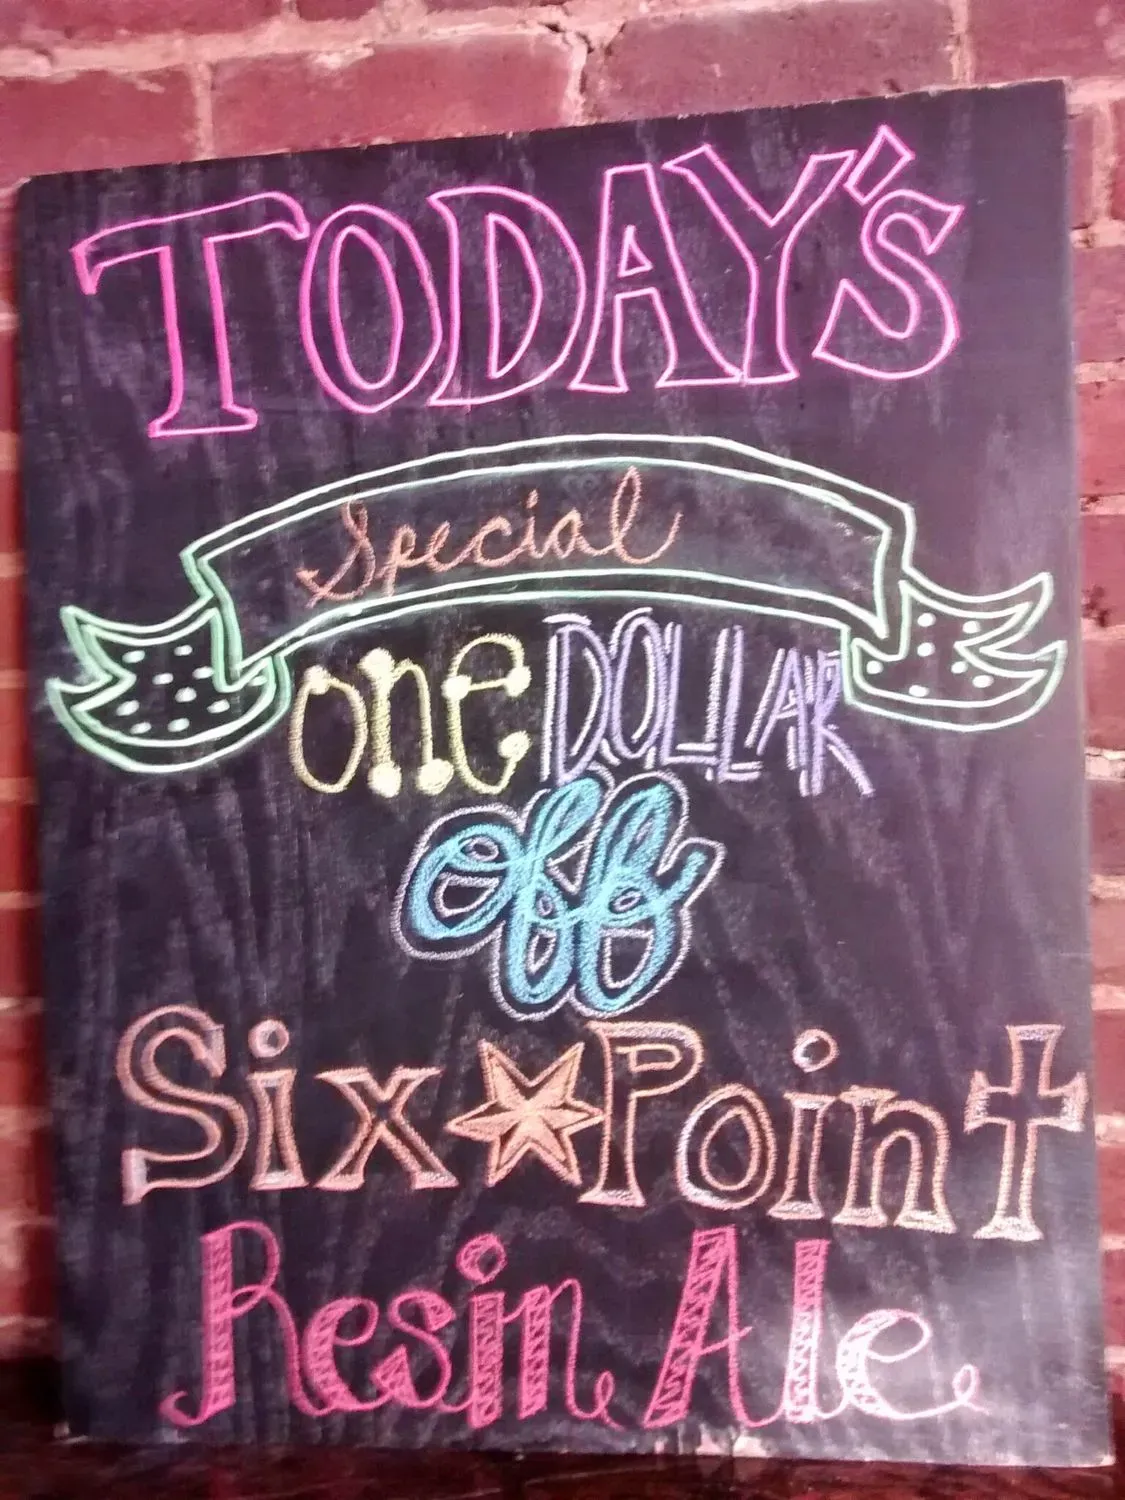 TODAY'S
Special
one DOLLAR
off
Six Point
Resin Ale